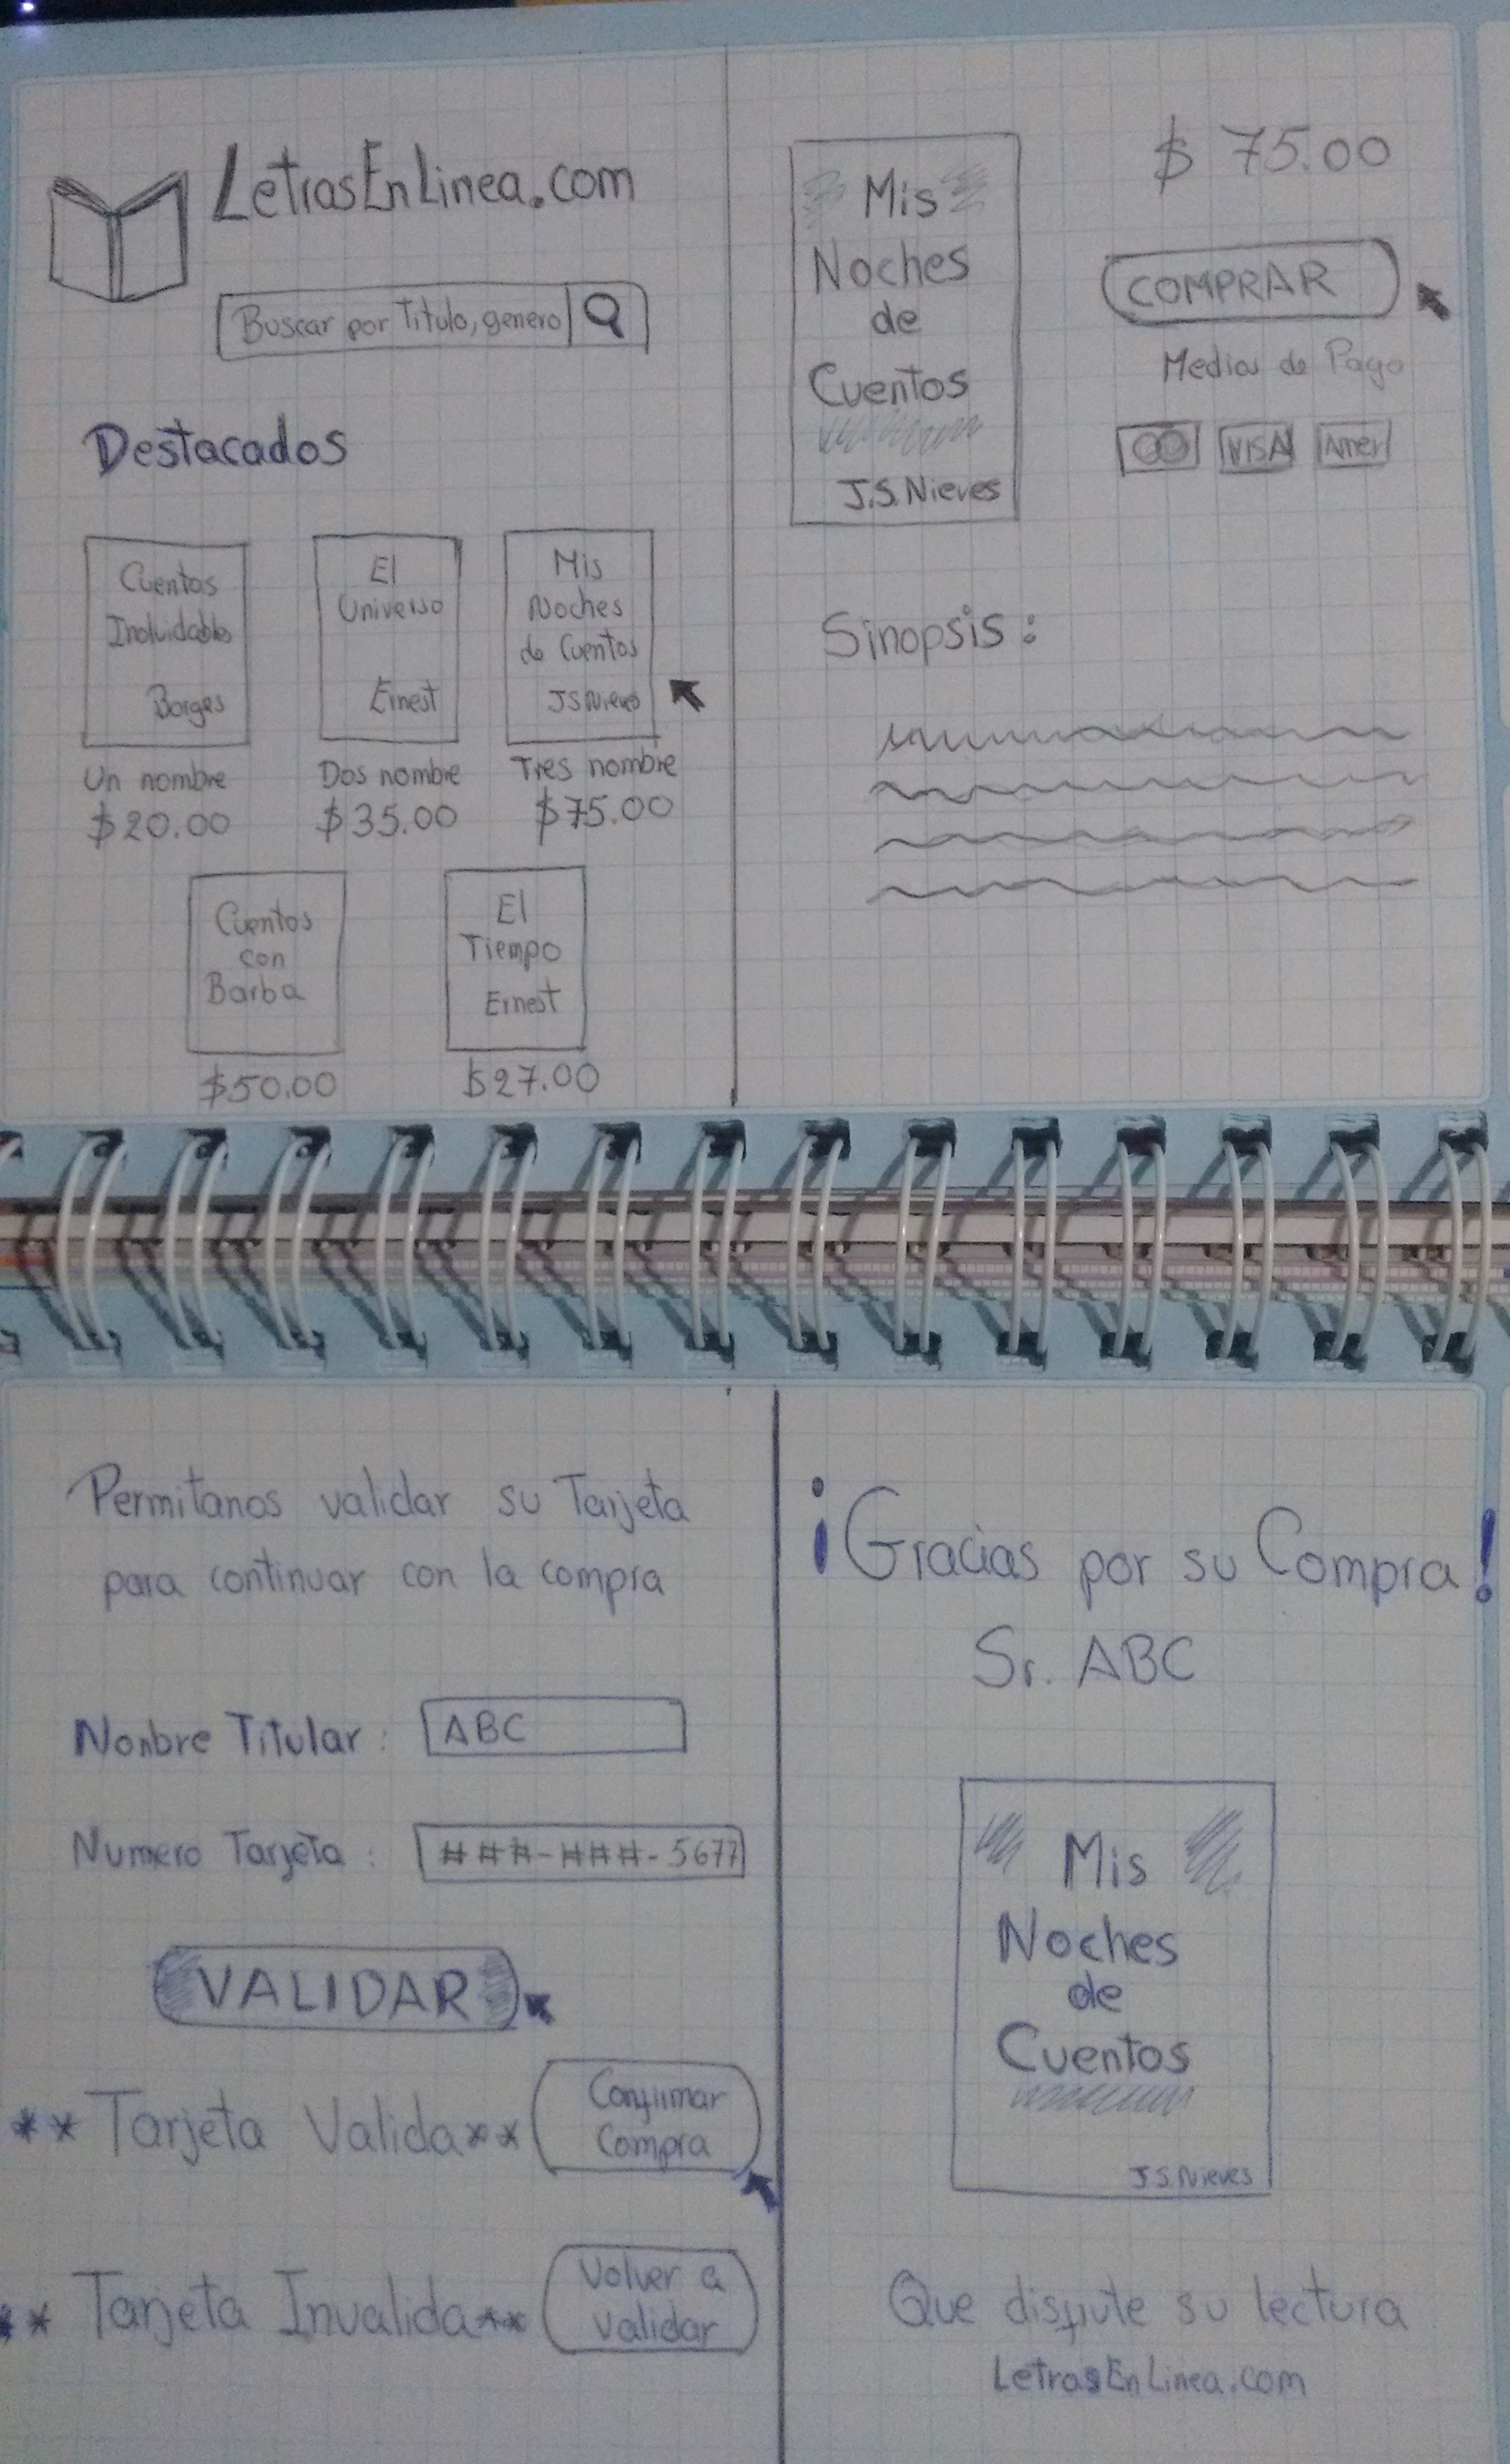 LetrasEnLinea.com
Buscar por Titulo, genero
Destacados
Cuentos
Inolvidables
Borges
Un nombre
$20.00
El
Universo
Ernest
Dos nombre
$35.00
Mis
Noches
de Cuentos
JS Nieves
Tres nombre
$75.00
Cuentos
con
Barba
$50.00
El
Tiempo
Ernest
$27.00
Mis
Noches
de
Cuentos
J.S. Nieves
$ 75.00
COMPRAR
Medios de Pago
VISA
Amer
Sinopsis:
Permitanos validar su Tarjeta
para continuar con la compra
Nonbre Titular: ABC
Numero Tarjeta: ###-###-5677
VALIDAR
** Tarjeta Valida**
Confirmar
Compra
** Tarjeta Invalida**
Volver a
validar
¡Gracias por su Compra!
Sr. ABC
Mis
Noches
de
Cuentos
J.S. Nieves
Que disfute su lectura
LetrasEnLinea.com